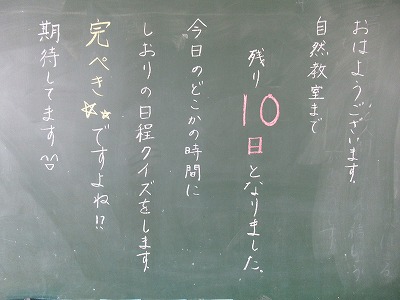 おはようございます。
自然教室まで
残り10日となりました。
今日のどこかの時間に
しおりの日程クイズをします。
完ぺき☆☆ですよね!?
期待してます